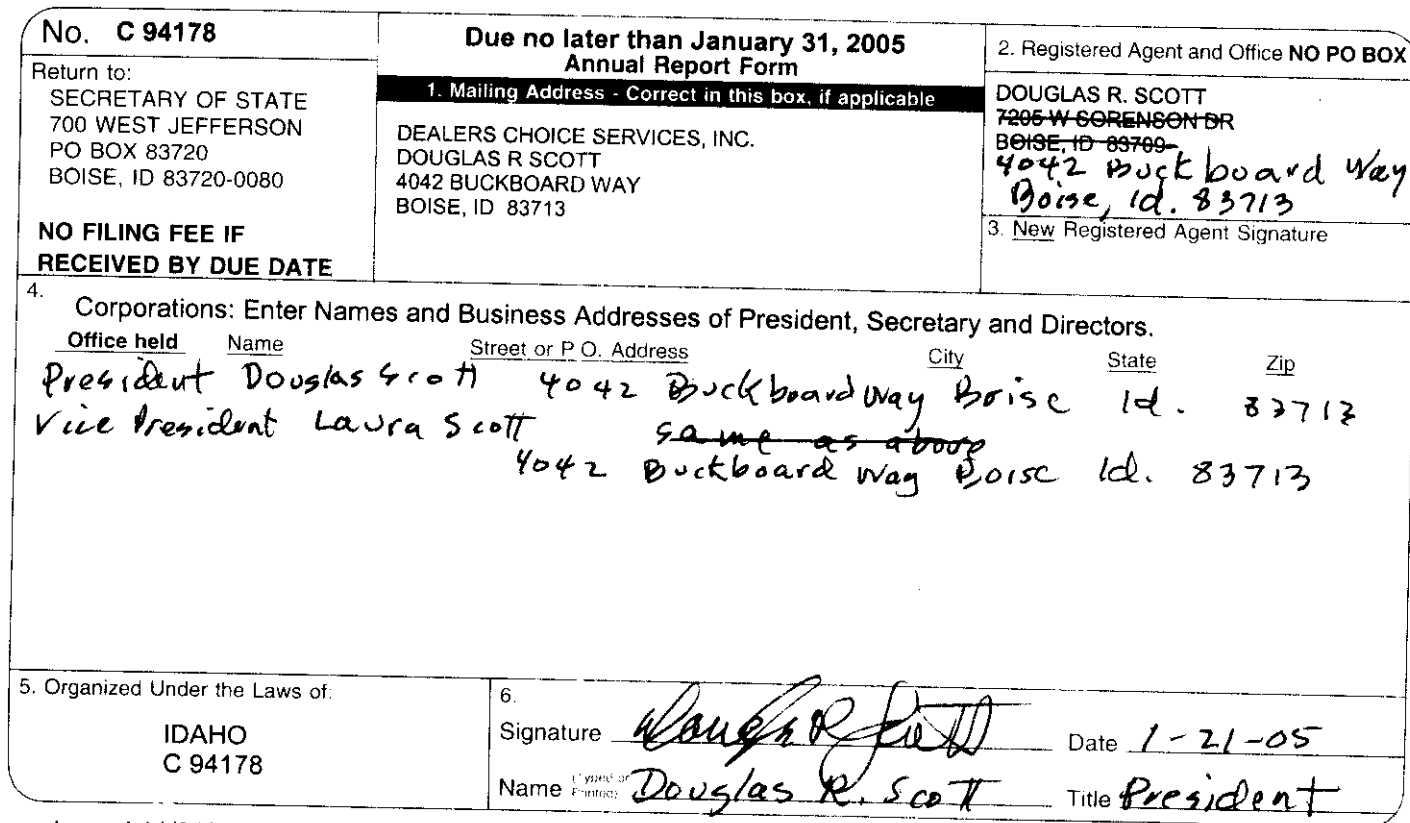 No. C 94178
Return to:
SECRETARY OF STATE
700 WEST JEFFERSON
PO BOX 83720
BOISE, ID 83720-0080
NO FILING FEE IF
RECEIVED BY DUE DATE
Due no later than January 31, 2005
Annual Report Form
1. Mailing Address - Correct in this box, if applicable
DEALERS CHOICE SERVICES, INC.
DOUGLAS R SCOTT
4042 BUCKBOARD WAY
BOISE, ID 83713
2. Registered Agent and Office NO PO BOX
DOUGLAS R. SCOTT
7205 W SORENSON DR
BOISE, ID 83709
4042 Buckboard Way
Boise, Id. 83713
3. New Registered Agent Signature
4.
Corporations: Enter Names and Business Addresses of President, Secretary and Directors.
Office held Name Street or P.O. Address City State Zip
President Douglas Scott 4042 Buckboard Way Boise Id. 83713
Vice President Laura Scott same as above
4042 Buckboard Way Boise Id. 83713
5. Organized Under the Laws of:
IDAHO
C 94178
6.
Signature Douglas R Scott Date 1-21-05
Name (Typed or Printed) Douglas R. Scott Title President